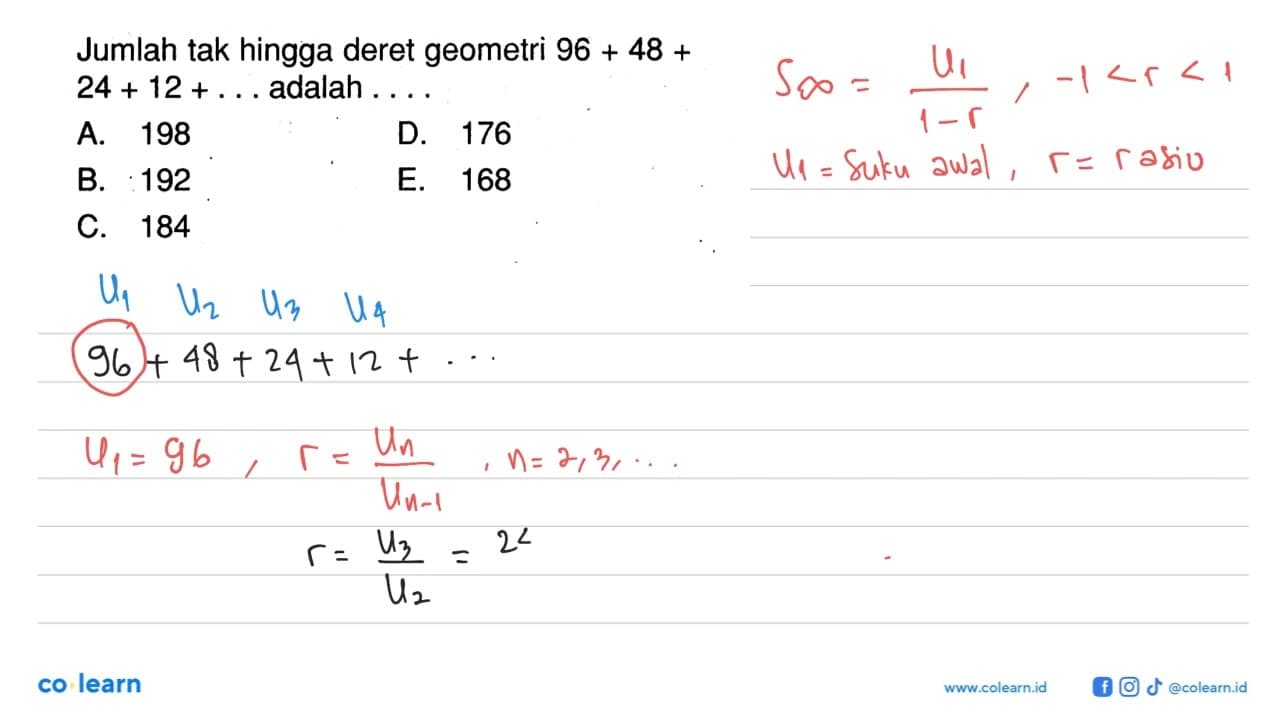 Jumlah tak hingga deret geometri 96 + 48 +
24 + 12 + . . . adalah . . . .
A. 198 D. 176
B. 192 E. 168
C. 184
S∞ = U1 / 1 - r , -1 < r < 1
U1 = suku awal , r = rasio
U1 U2 U3 U4
96 + 48 + 24 + 12 + . . .
U1 = 96 , r = Un / Un-1 , n = 2, 3, . . .
r = U3 / U2 = 24
co learn
www.colearn.id @colearn.id